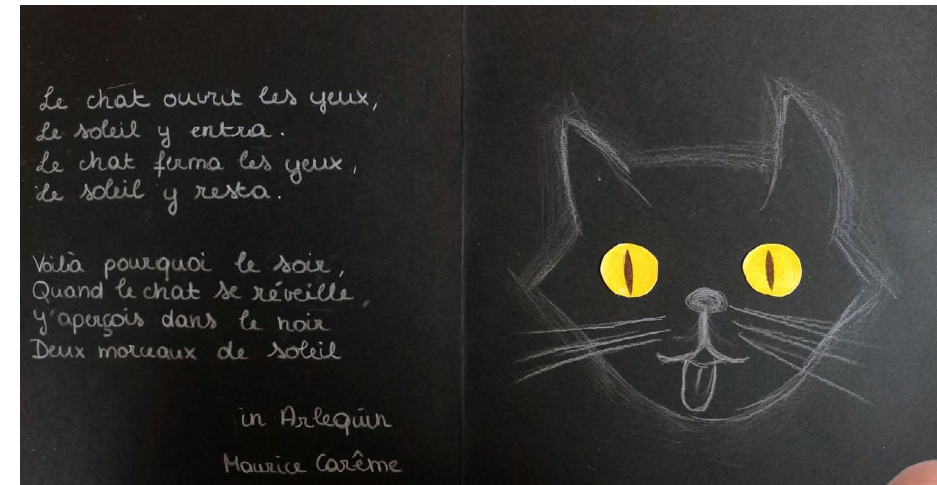 Le chat ouvrit les yeux,
Le soleil y entra.
Le chat ferma les yeux,
Le soleil y resta.
Voilà pourquoi le soir,
Quand le chat se réveille,
J'aperçois dans le noir
Deux morceaux de soleil
in Arlequin
Maurice Carême